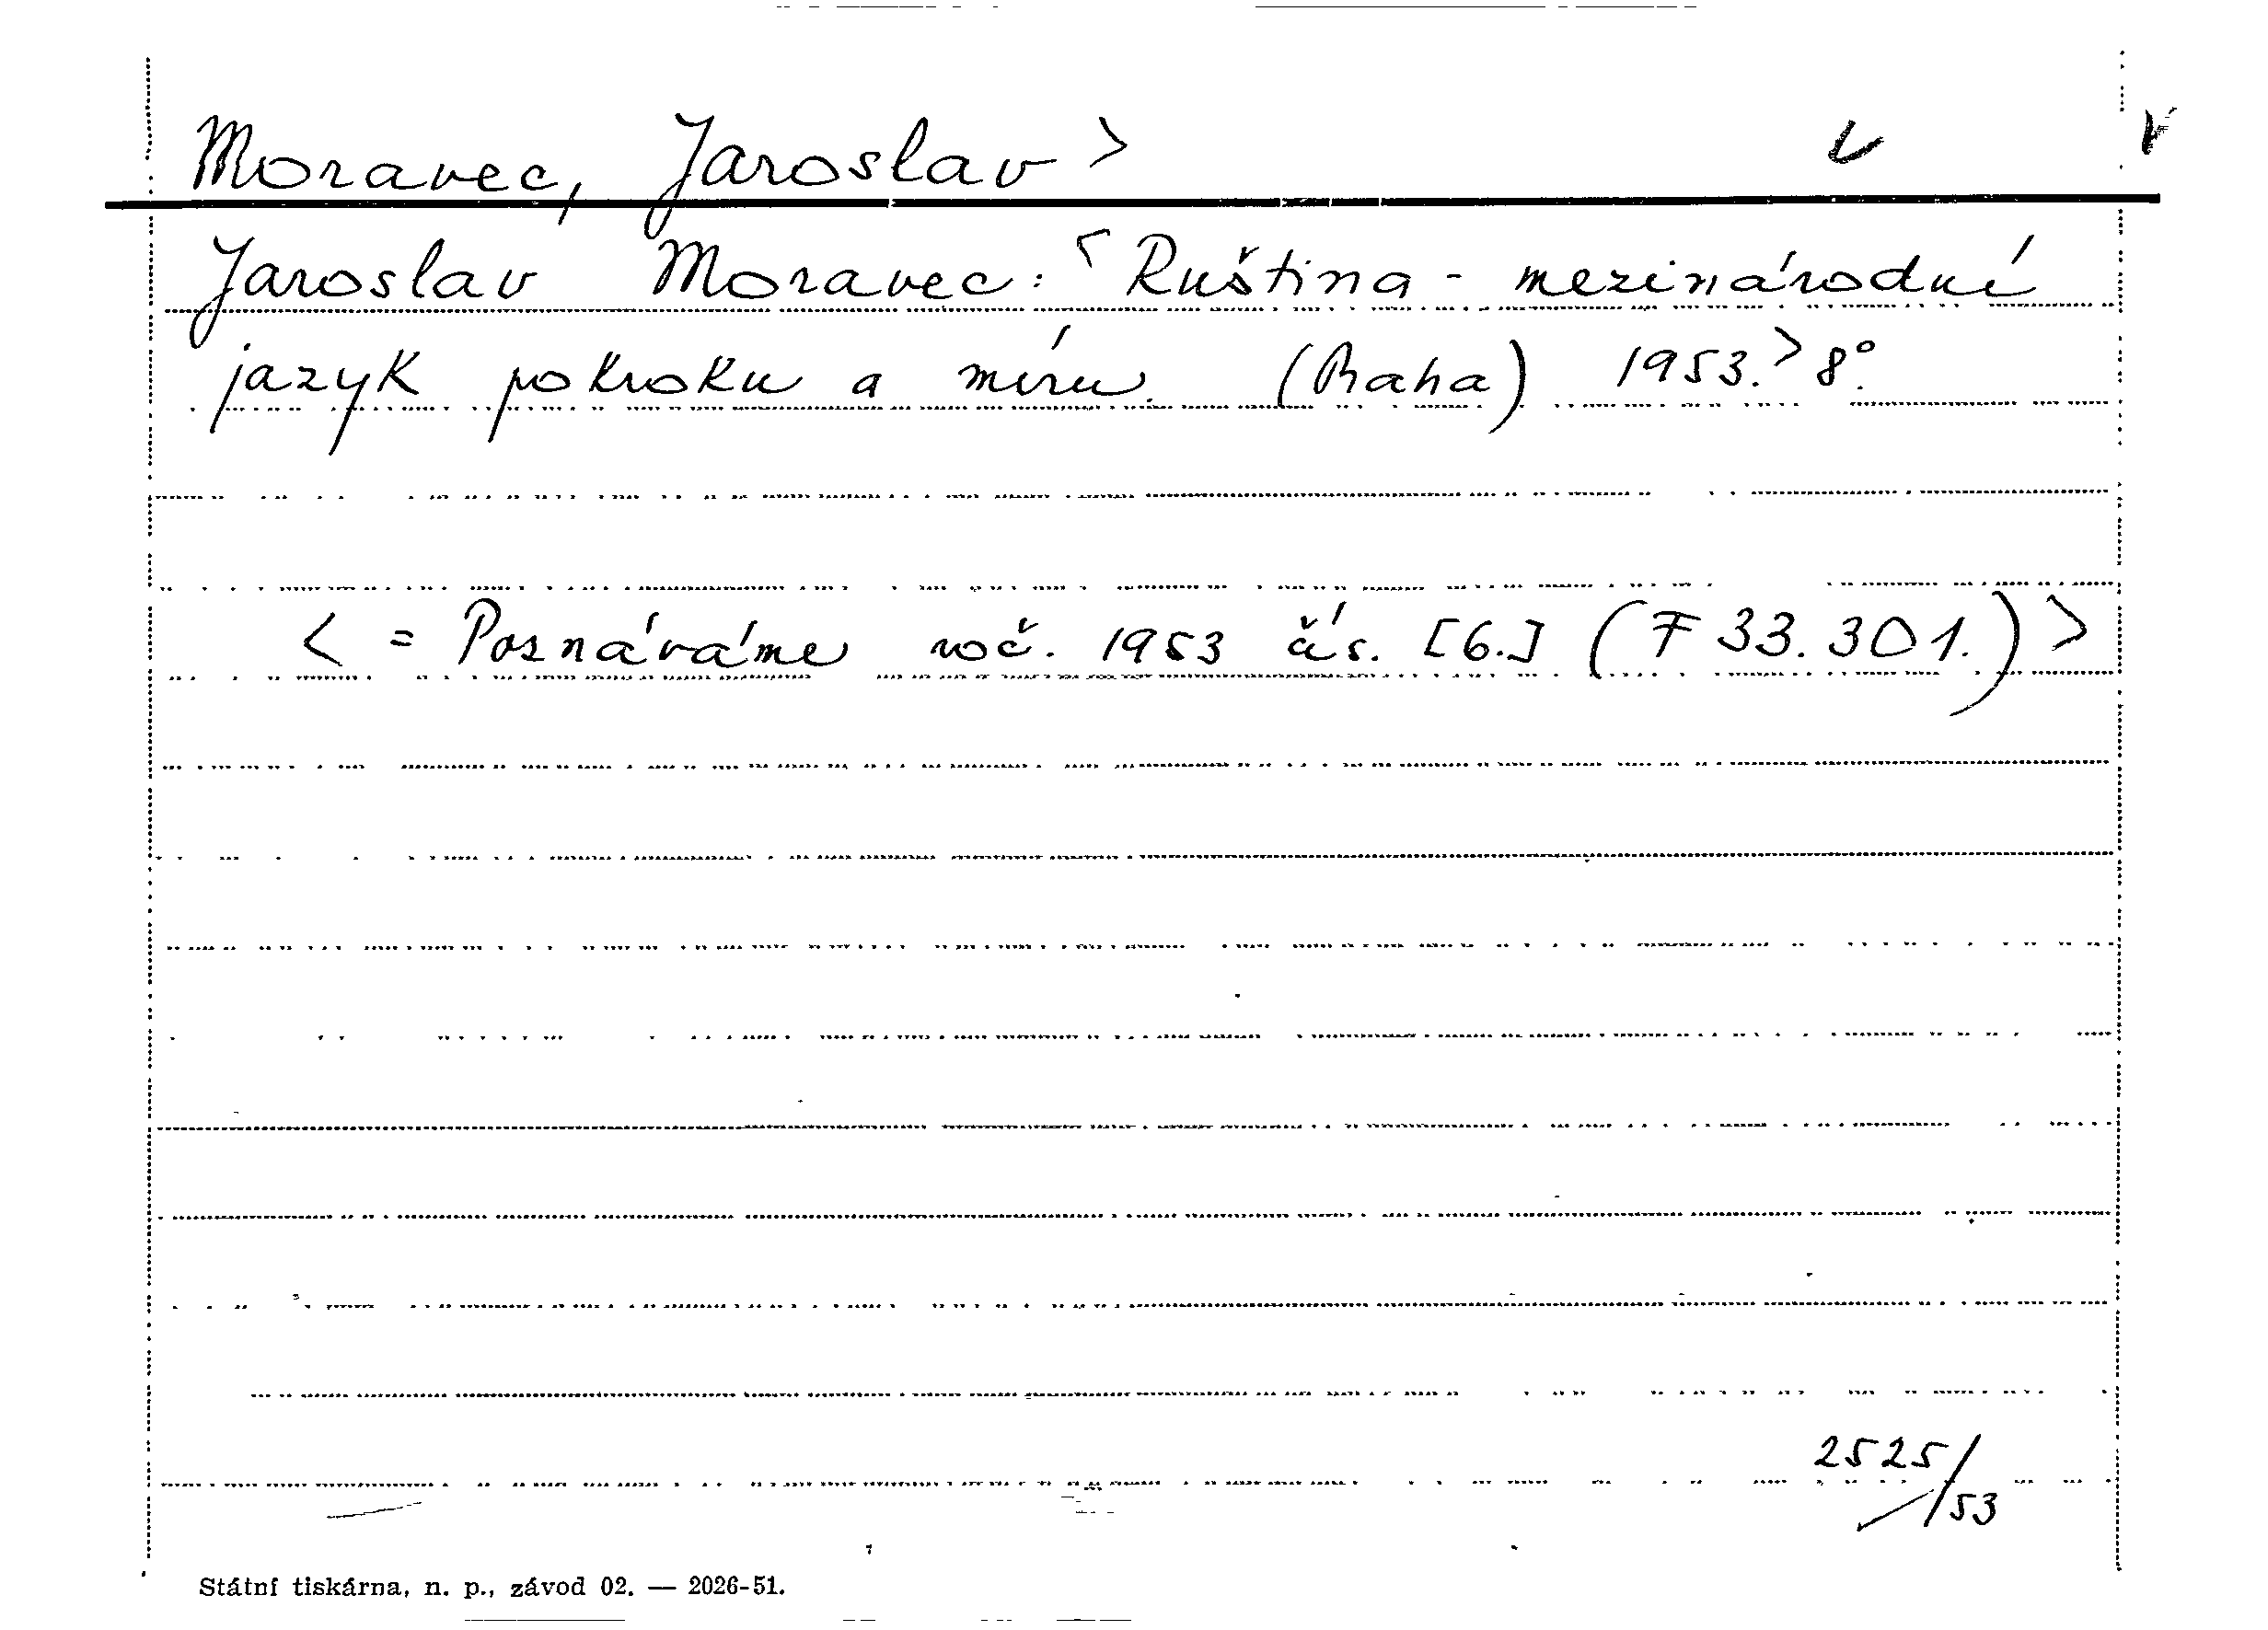 Moravec, Jaroslav >
Jaroslav Moravec: < Ruština - mezinárodní
jazyk pokroku a míru. (Praha) 1953. > 8°.
< = Poznáváme roč. 1953 čís. [6.] (F 33.301.) >
2525/53
Státní tiskárna, n. p., závod 02. — 2026-51.